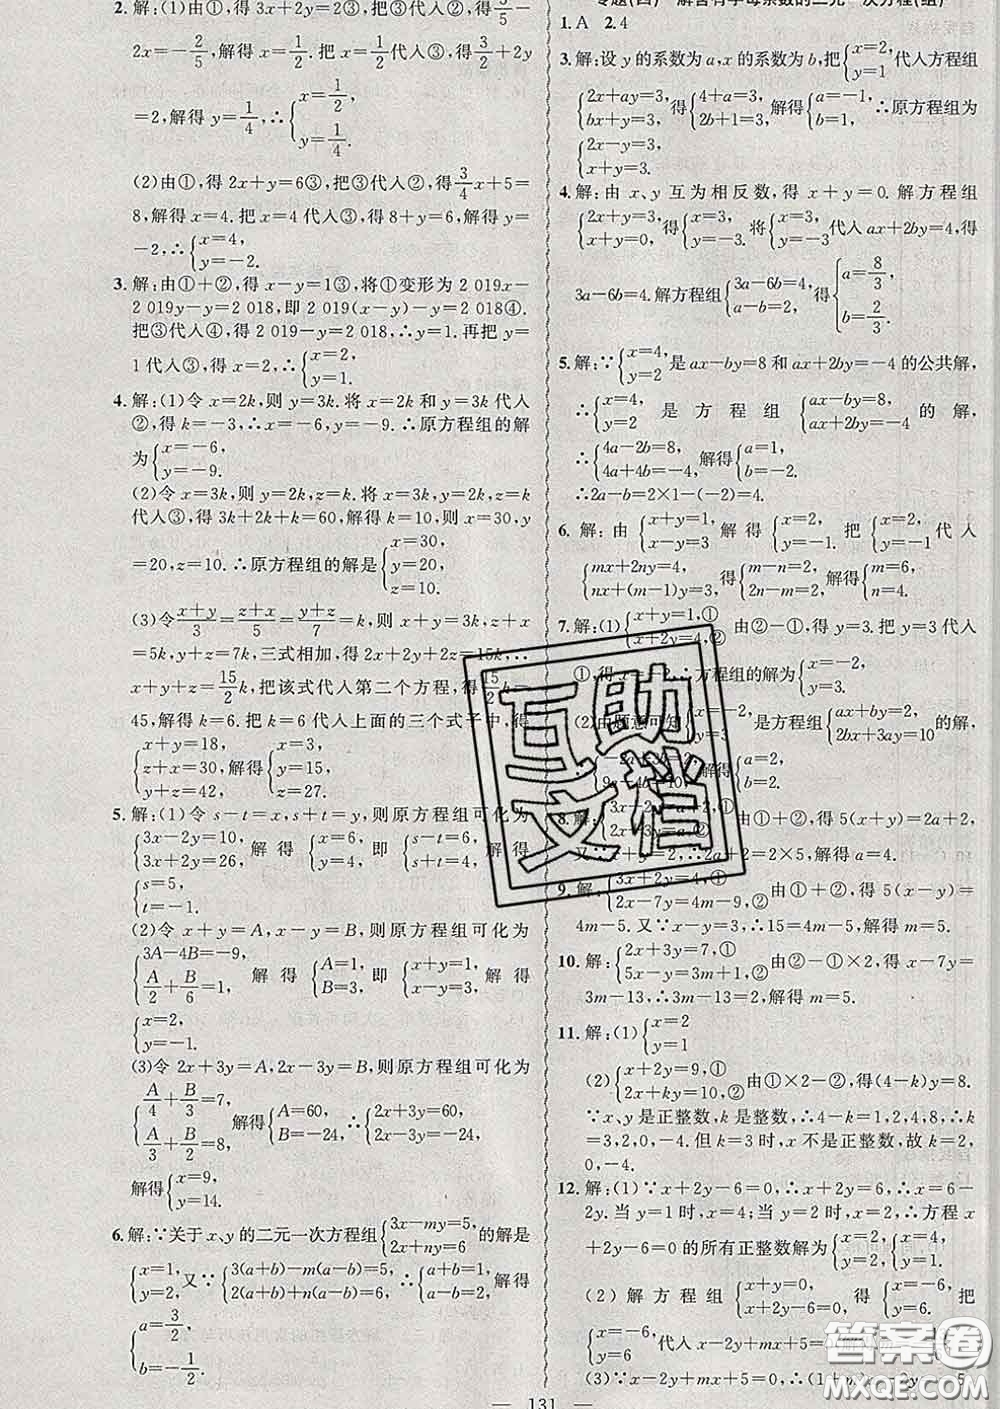 2. 解:由①,得3x+2y=2③,把③代入②,得
2x=-2/5,解得x=1/2.把x=1/2代入③,得3/2+2y
=2,解得y=1/4,∴{x=1/2, y=1/4.
(2)由①,得2x+y=6③,把③代入②,得3/4x+5=
8,解得x=4.把x=4代入③,得8+y=6,解得y=
-2,∴{x=4, y=-2.
3. 解:由①+②,得x-y=1③,将①变形为2 019x-
2 019y-y=2 018,即2 019(x-y)-y=2 018④.
把③代入④,得2 019-y=2 018,∴y=1.再把y=
1代入③,得x=2,∴{x=2, y=1.
4. 解:(1)令x=2k,则y=3k.将x=2k和y=3k代入
②,得k=-3,∴x=-6,y=-9.∴原方程组的解
为{x=-6, y=-9.
(2)令x=3k,则y=2k,z=k.将x=3k,y=2k,z=k
代入③,得3k+2k+k=60,解得k=10,则x=30,y
=20,z=10.∴原方程组的解是{x=30, y=20, z=10.
(3)令(x+y)/3=(z+x)/5=(y+z)/7=k,则x+y=3k,z+x
=5k,y+z=7k,三式相加,得2x+2y+2z=15k,∴
x+y+z=15/2k,把该式代入第二个方程,得15/2k=
45,解得k=6.把k=6代入上面的三个式子中,得
{x+y=18, z+x=30, y+z=42, 解得{x=3, y=15, z=27.
5. 解:(1)令s-t=x,s+t=y,则原方程组可化为
{3x-2y=10, 3x+2y=26, 解得{x=6, y=4, 即{s-t=6, s+t=4, 解得
{s=5, t=-1.
(2)令x+y=A,x-y=B,则原方程组可化为
{3A-4B=-9, A/2+B/6=1, 解得{A=1, B=3, 即{x+y=1, x-y=3, 解得
{x=2, y=-1.
(3)令2x+3y=A,2x-3y=B,则原方程组可化为
{A/4+B/3=7, A/3+B/2=8, 解得{A=60, B=-24, ∴{2x+3y=60, 2x-3y=-24,
解得{x=9, y=14.
6. 解:∵关于x、y的二元一次方程组{3x-my=5, 2x+ny=6 的解是
{x=1, y=2, 又∵{3(a+b)-m(a-b)=5, 2(a+b)+n(a-b)=6, ∴{a+b=1, a-b=2, 解得
{a=3/2, b=-1/2.
专题(四) 解含有字母系数的二元一次方程(组)
1.A 2.4
3. 解:设y的系数为a,x的系数为b,把{x=2, y=1 代入方程组
{2x+ay=3, bx+y=3, 得{4+a=3, 2b+1=3, 解得{a=-1, b=1, ∴原方程组为
{2x-y=3, x+y=3.
4. 解:由x、y互为相反数,得x+y=0.解方程组
{2x+y=3, x+y=0, 得{x=3, y=-3. 将{x=3, y=-3 代入ax+2by=4,得
3a-6b=4.解方程组{3a-6b=4, a-b=2, 得{a=8/3, b=2/3.
5. 解:∵{x=4, y=2 是ax-by=8和ax+2by=-4的公共解,
∴{x=4, y=2 是方程组{ax-by=8, ax+2by=-4 的解,
∴{4a-2b=8, 4a+4b=-4, 解得{a=1, b=-2.
∴2a-b=2×1-(-2)=4.
6. 解:由{x+y=1, x-y=3 解得{x=2, y=-1. 把{x=2, y=-1 代入
{mx+2ny=4, nx+(m-1)y=3, 得{m-n=2, 2n-m=2, 解得{m=6, n=4.
7. 解:(1){x+y=1,① x+2y=4,② 由②-①,得y=3.把y=3代入
①,得x=-2,∴方程组的解为{x=-2, y=3.
(2)由题意可知{x=-2, y=3 是方程组{ax+by=2, 2bx+3ay=8 的解,
解得{a=2, b=2.
8. 解:{3x+2y=a+2,① 2x+3y=a,② 由①+②,得5(x+y)=2a+2,
又∵x+y=2,∴2a+2=2×5,解得a=4.
9. 解:{3x+2y=4,① 2x-7y=4m-9,② 由①+②,得5(x-y)=
4m-5.又∵x-y=3,∴15=4m-5,解得m=5.
10. 解:{2x+3y=7,① 3x-4y=3m-6,② 由②-①,得x-7y=
3m-13,∴3m-13=2,解得m=5.
11. 解:(1){x=2 y=1
(2){x+2y=9,① 2x+ky=10,② 由①×2-②,得(4-k)y=8.
∵x、y是正整数,k是整数,∴4-k=1,2,4,8,∴k
=3,2,0,-4.但k=3时,x不是正整数,故k=2,
0,-4.
12. 解:(1)∵x+2y-6=0,∴x+2y=6,∴x=6-
2y.当y=1时,x=4;当y=2时,x=2,∴方程x
+2y-6=0的所有正整数解为{x=4, y=1, {x=2, y=2.
(2)解方程组{x+y=0, x+2y-6=0, 得{x=-6, y=6. 把
{x=-6, y=6 代入x-2y+mx+5=0,
(3)∵x-2y+mx+5=0,∴(1+m)x-2y=-5
— 131 —
互助
文档
答案圈
MXQE.COM